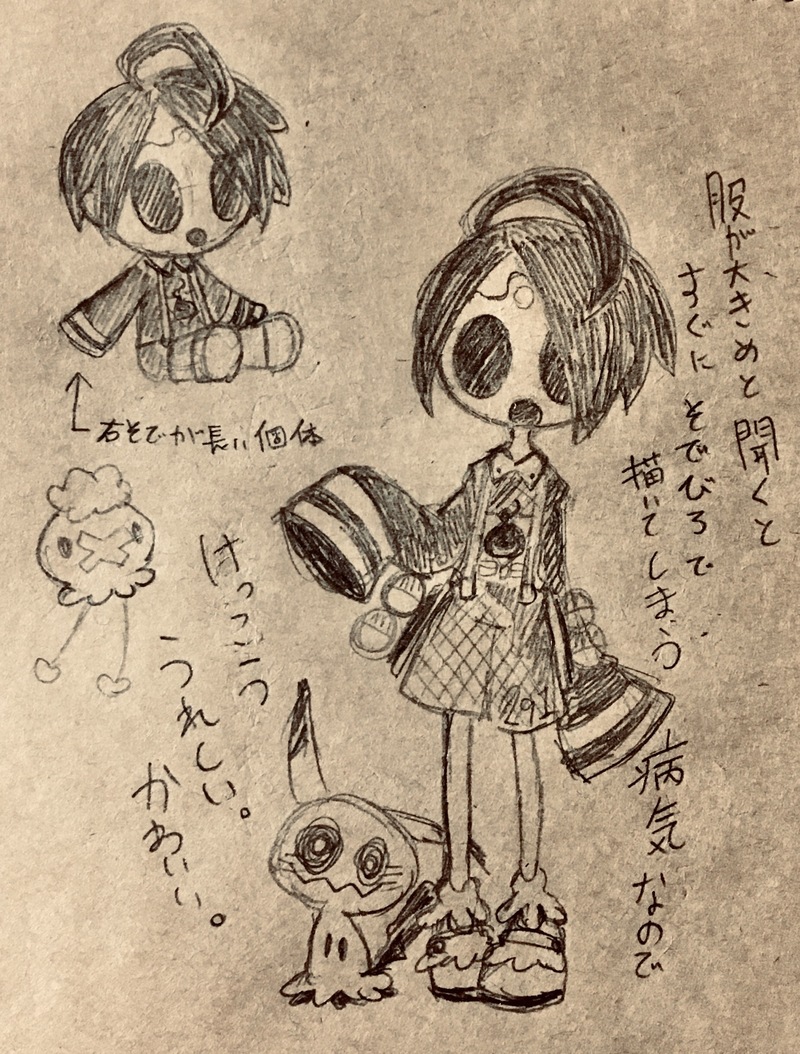 服が大きめと聞くと
すぐにそでびろで
描いてしまう
病気なので
けっこう
うれしい。
かわいい。
右そでが長い個体
291